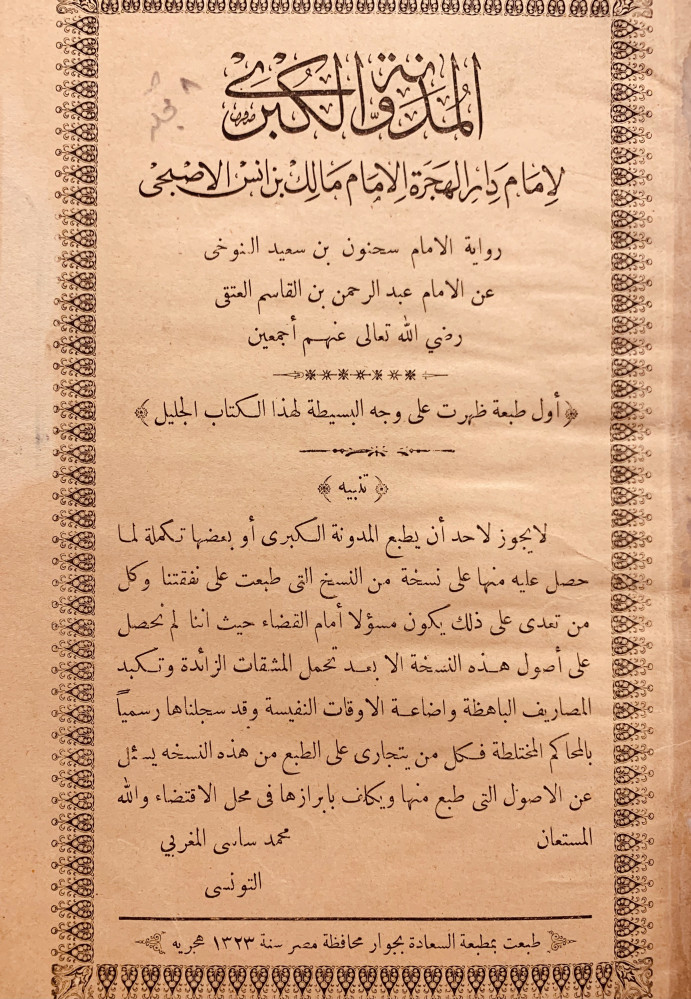 المدونة الكبرى
لإمام دار الهجرة الإمام مالك بن انس الاصبحى
رواية الامام سحنون بن سعيد التنوخى
عن الامام عبد الرحمن بن القاسم العتقى
رضي الله تعالى عنهم أجمعين
﴿ أول طبعة ظهرت على وجه البسيطة لهذا الكتاب الجليل ﴾
﴿ تنبيه ﴾
لايجوز لاحد أن يطبع المدونة الكبرى أو بعضها تكملة لما
حصل عليه منها على نسخة من النسخ التى طبعت على نفقتنا وكل
من تعدى على ذلك يكون مسؤلا أمام القضاء حيث اننا لم نحصل
على أصول هذه النسخة الا بعد تحمل المشقات الزائدة وتكبد
المصاريف الباهظة واضاعة الاوقات النفيسة وقد سجلناها رسمياً
بالمحاكم المختلطة فكل من يتجارى على الطبع من هذه النسخه يسئل
عن الاصول التى طبع منها ويكلف بابرازها فى محل الاقتضاء والله
المستعان محمد ساسى المغربي
التونسى
طبعت بمطبعة السعادة بجوار محافظة مصر سنة ١٣٢٣ هجريه